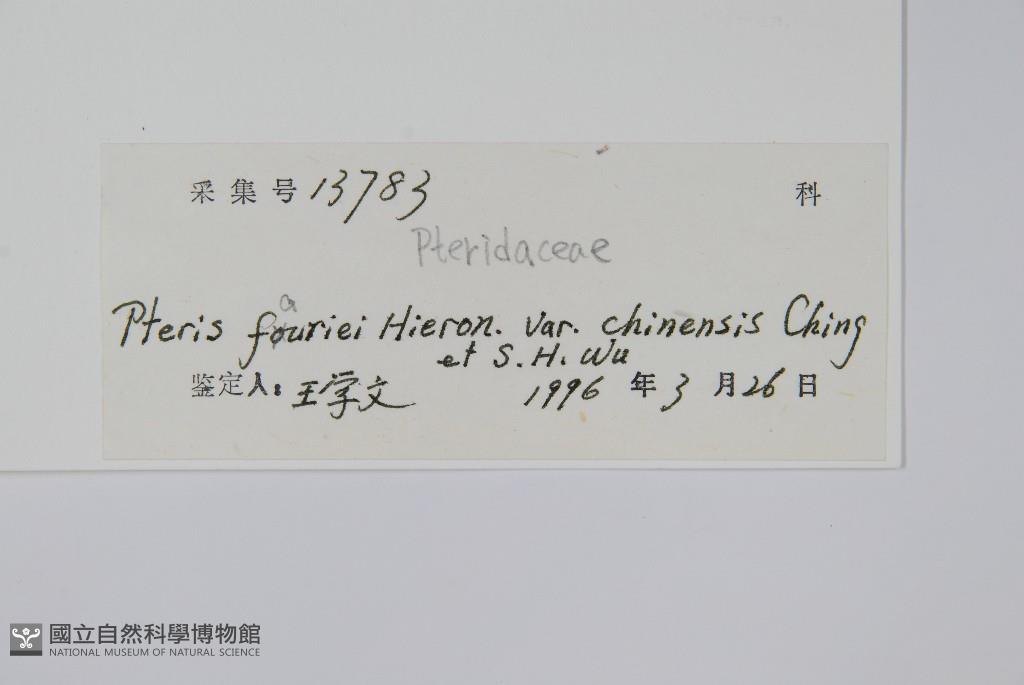 采集号 13783 科
Pteridaceae
a
Pteris fouriei Hieron. var. chinensis Ching
et S. H. Wu
鉴定人: 王学文 1996 年 3 月 26 日
國立自然科學博物館
NATIONAL MUSEUM OF NATURAL SCIENCE